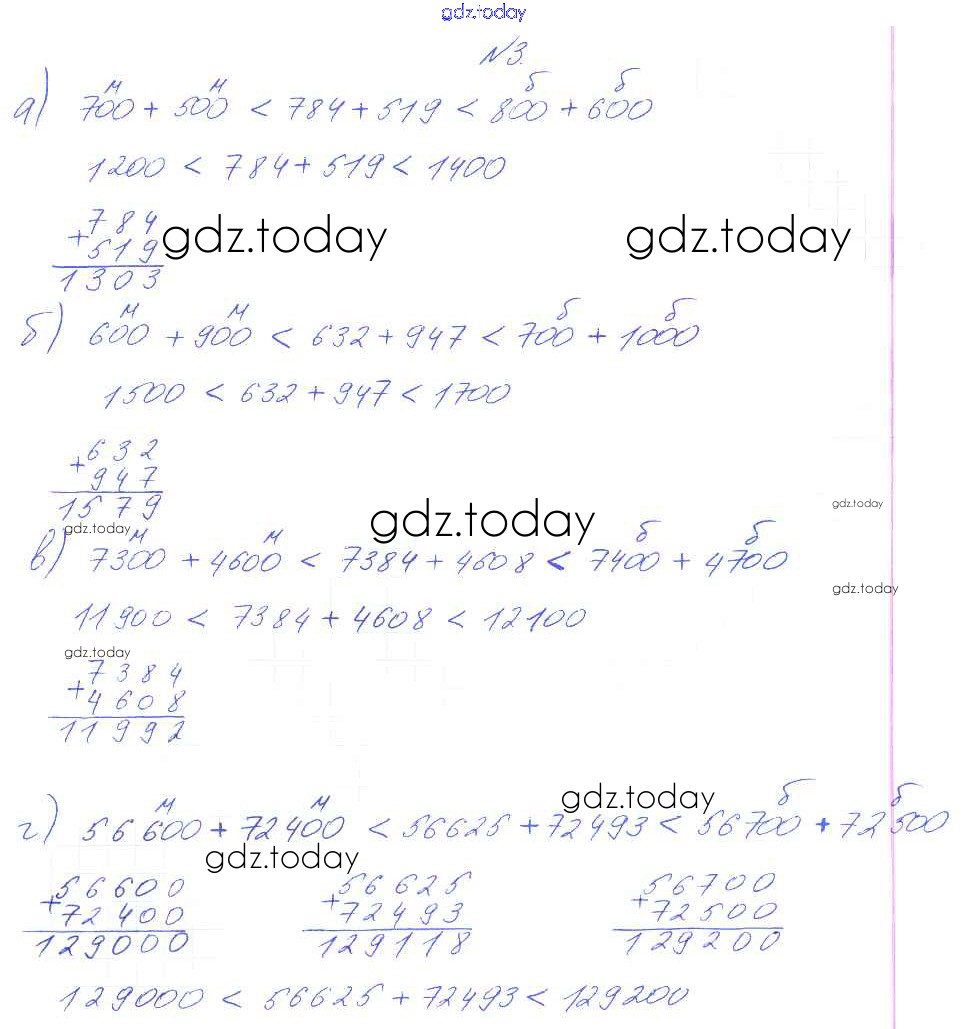 gdz.today
№3.
м м б б
а) 700 + 500 < 784 + 519 < 800 + 600
1200 < 784 + 519 < 1400
+ 784
519 gdz.today gdz.today
1303
м м б б
б) 600 + 900 < 632 + 947 < 700 + 1000
1500 < 632 + 947 < 1700
+ 632
947
1579
gdz.today
gdz.today
gdz.today
м м б б
в) 7300 + 4600 < 7384 + 4608 < 7400 + 4700
gdz.today
11900 < 7384 + 4608 < 12100
gdz.today
+ 7384
4608
11992
gdz.today
м м б б
г) 56600 + 72400 < 56625 + 72493 < 56700 + 72500
gdz.today
+ 56600 + 56625 + 56700
72400 72493 72500
129000 129118 129200
129000 < 56625 + 72493 < 129200